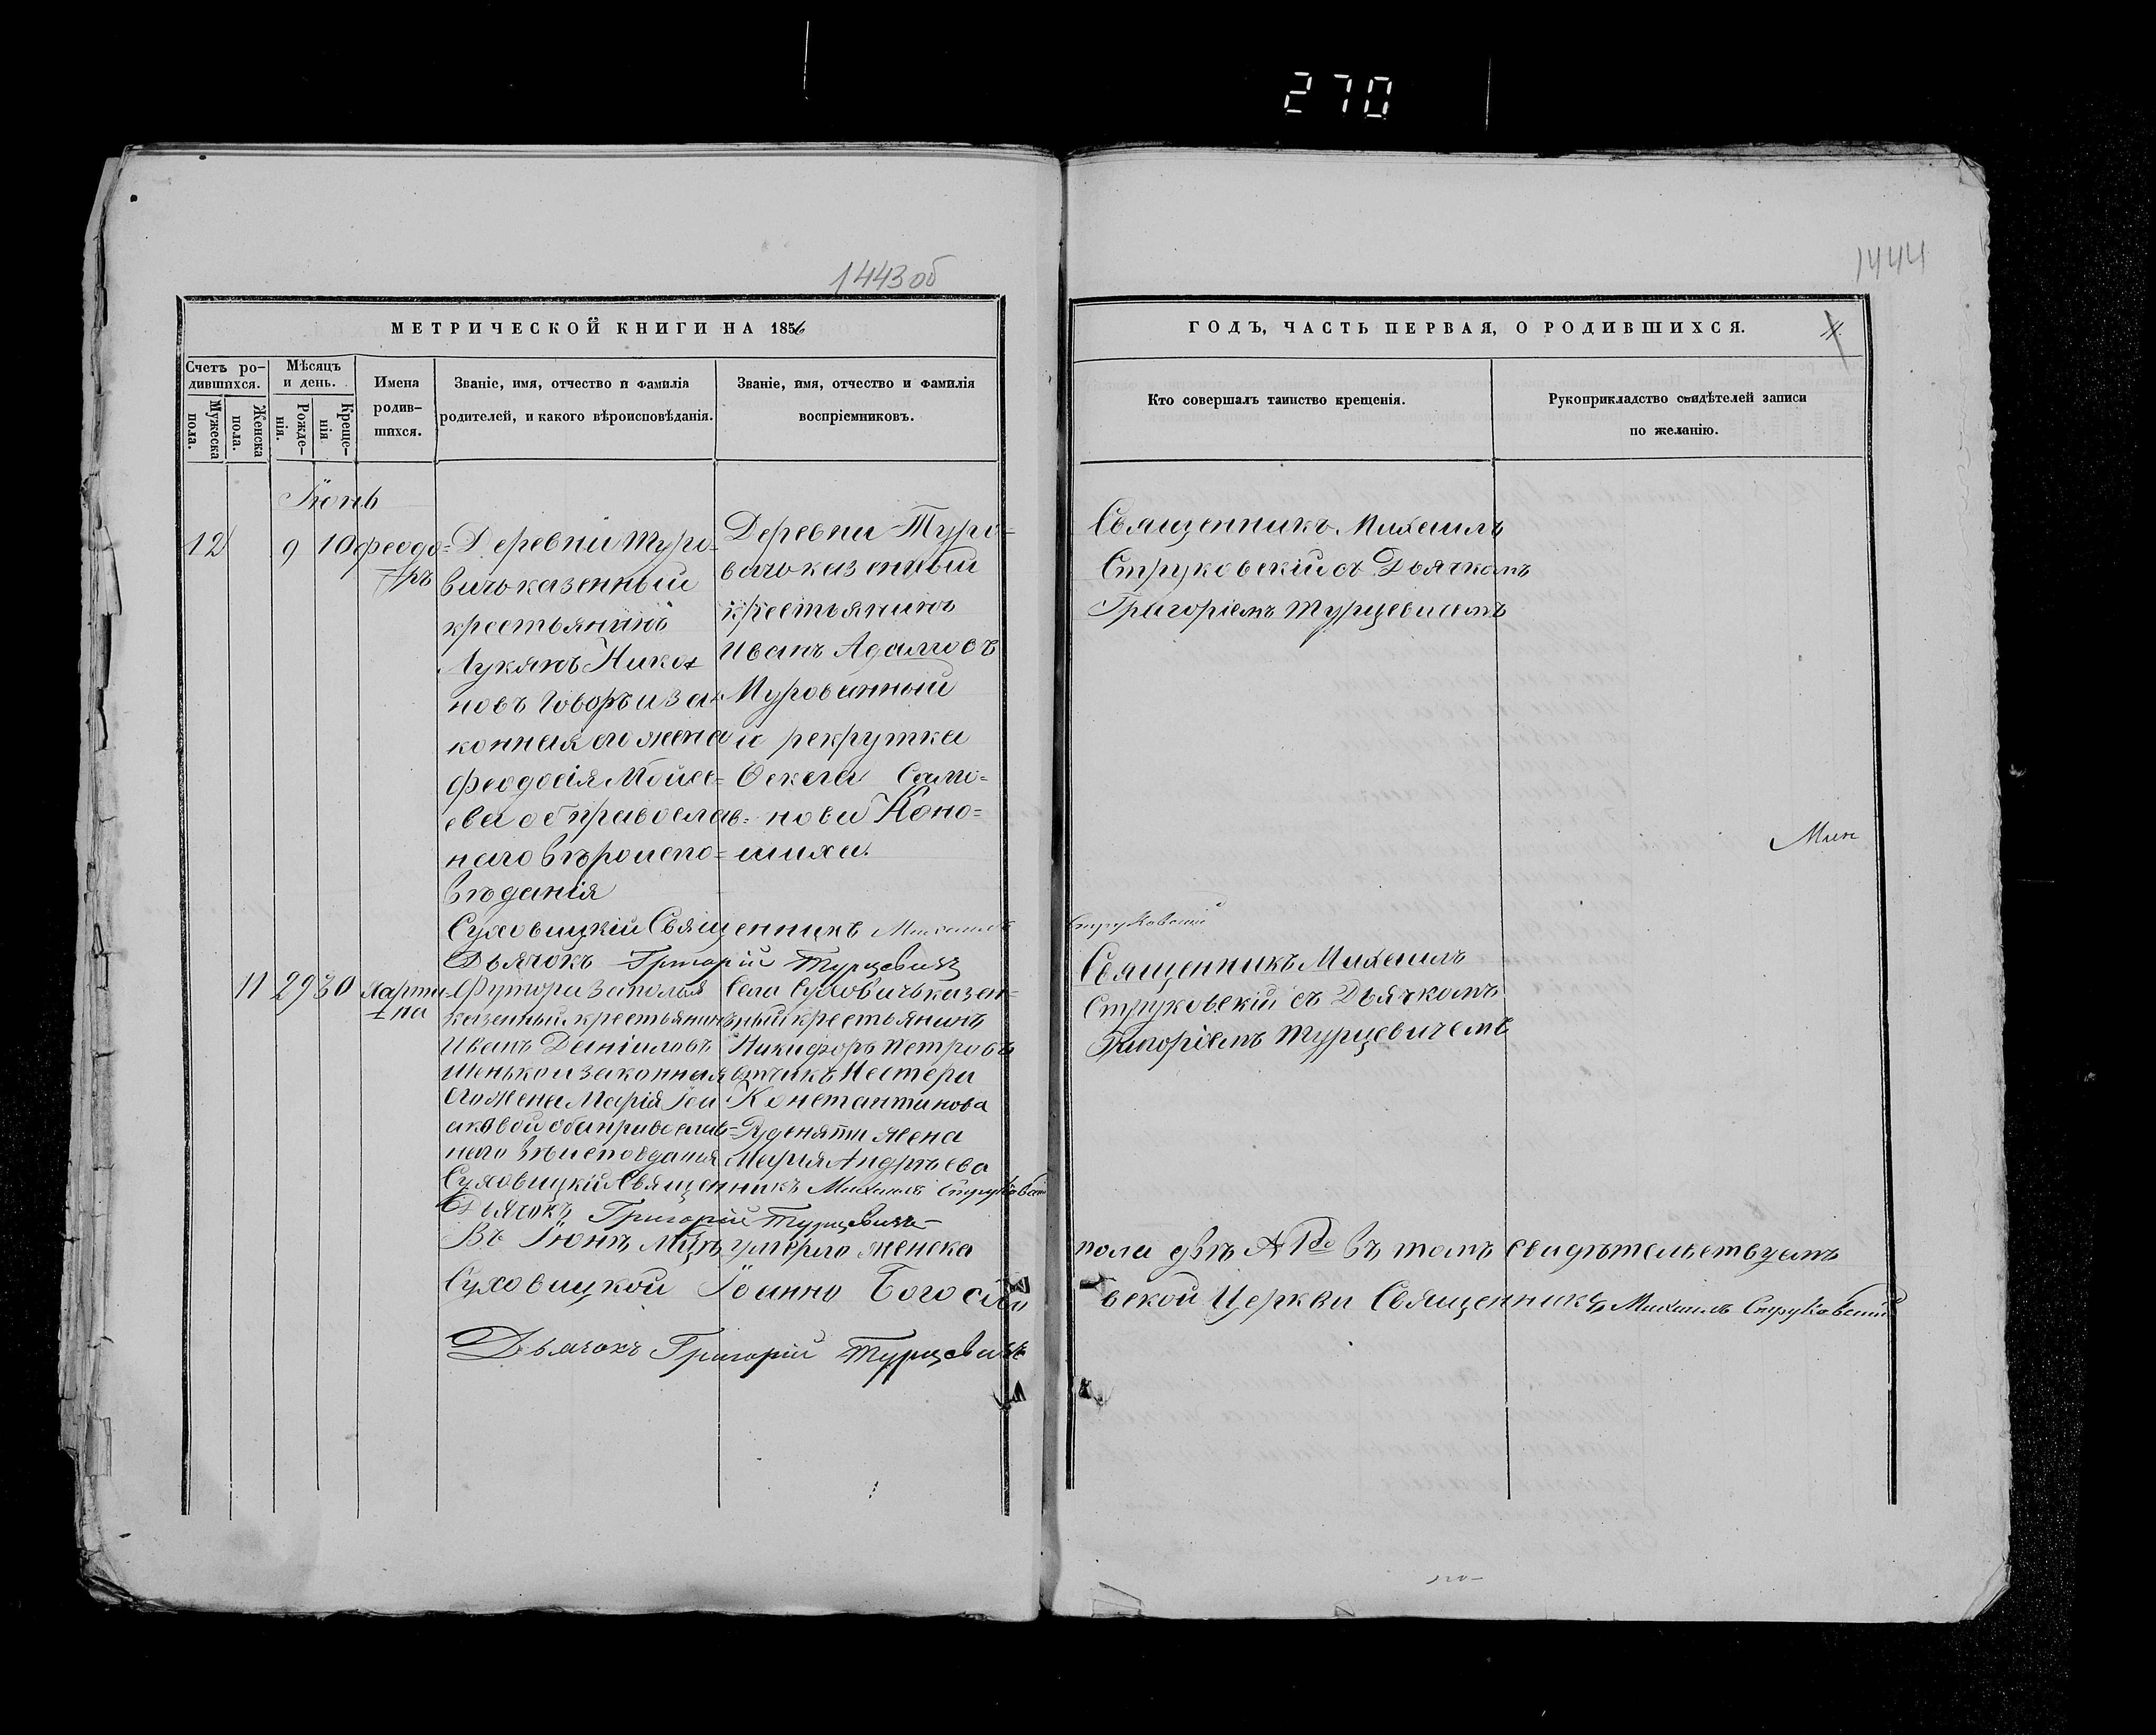 270
1443 об
1444
МЕТРИЧЕСКОЙ КНИГИ НА 1856
ГОДЪ, ЧАСТЬ ПЕРВАЯ, О РОДИВШИХСЯ.
Счетъ ро-
дившихся.
Мужеска
пола.
Женска
пола.
Мѣсяцъ
и день.
Рожде-
нія.
Креще-
нія
Имена
родив-
шихся.
Званіе, имя, отчество и фамилія
родителей, и какого вѣроисповѣданія.
Званіе, имя, отчество и фамилія
воспріемниковъ.
Кто совершалъ таинство крещенія.
Рукоприкладство свидѣтелей записи
по желанію.
Іюнь
12
9
10
Феодо=
ръ
Деревни Туро-
вичь казенный
крестьянинъ
Лукянъ Нико
новъ Говоръ и за
конная его жена
Феодосія Мойсе=
ева об православ=
наго вѣроиспо=
вѣданія
Деревни Туро=
вичь казенный
крестьянинъ
Иванъ Адамовъ
Мурованный
и рекрутка
Фекла Само=
нова Коно=
шиха.
Священникъ Михаилъ
Струковскій съ Дьячкомъ
Григоріемъ Турцевичемъ
Мин
Суховицкій Священникъ Михаилъ Струковскій
Дьячокъ Григорій Турцевичъ
11
29
30
Марти-
на
Футора Заполья
казенный крестьянинъ
Иванъ Даніиловъ
Шенько и законная
его жена Марія Іса
аковой оба православ=
наго вѣисповданія
Села Суховичь казен=
ный крестьянинъ
Никифоръ Петровъ
Нестера
Константинова
жена
Марія Андрѣева
Священникъ Михаилъ
Струковскій съ Дьячкомъ
Григоріемъ Турцевичемъ
Суховицкій Священникъ Михаилъ Струковскій
Дьячокъ Григорій Турцевичъ
Въ Іюнѣ женска пола двѣ въ томъ свидѣтельствуемъ
Суховицкой Іоанно Богословской Церкви Священникъ Михаилъ Струковскій
Дьячокъ Григорій Турцевичъ